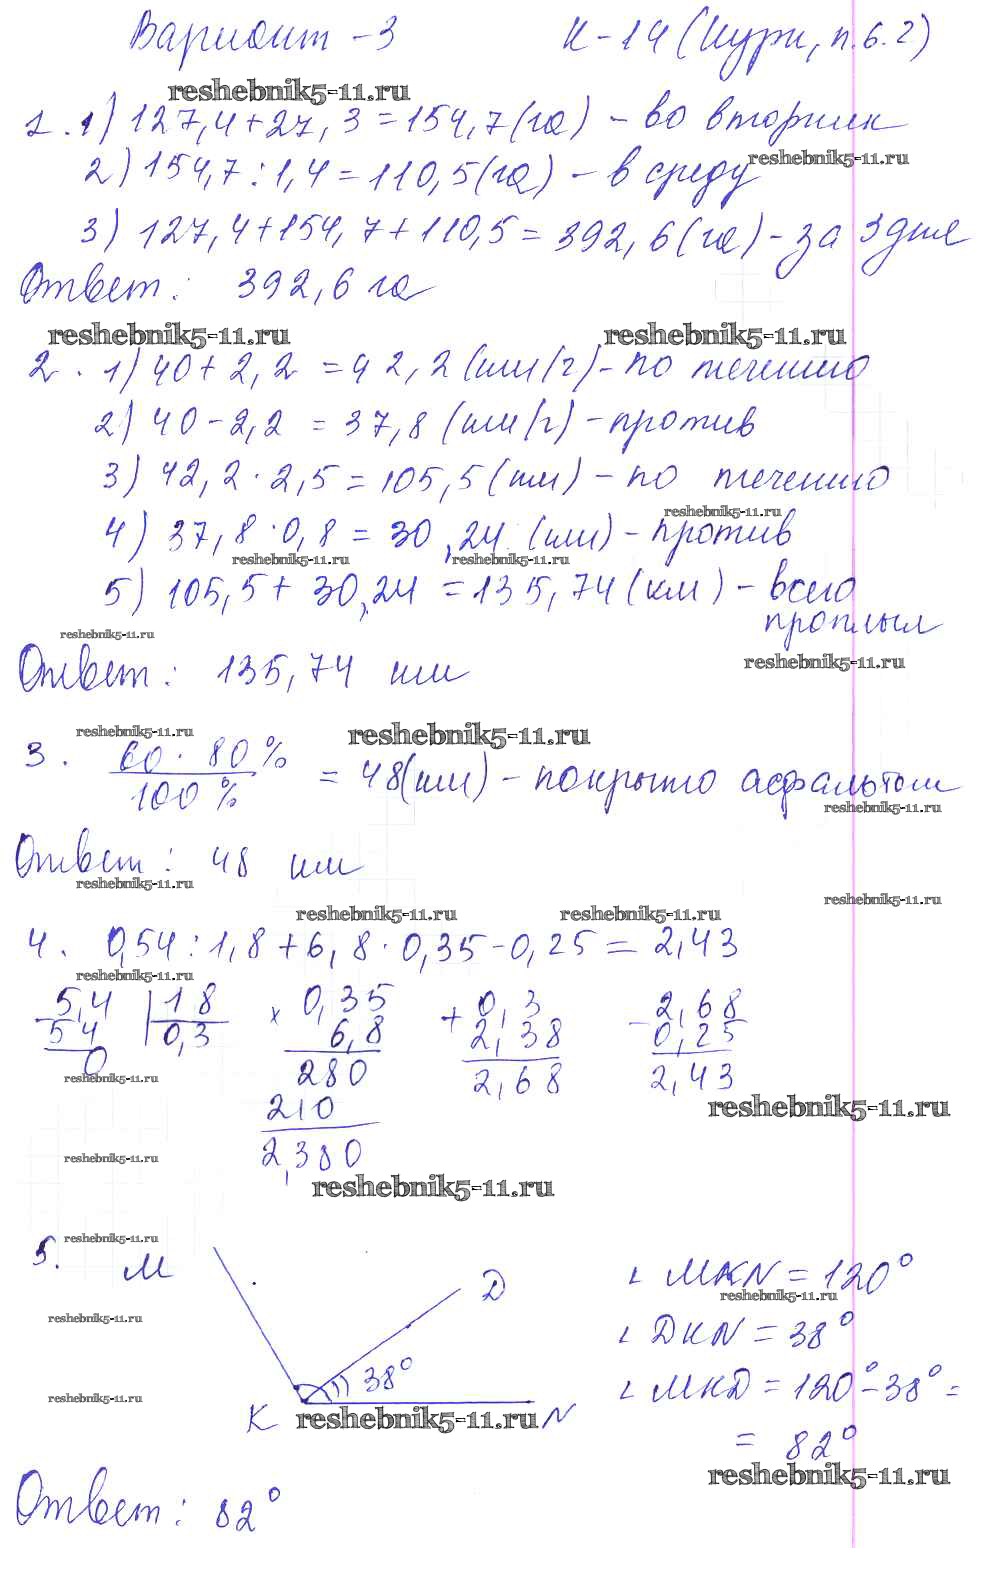 Вариант - 3 К-14 (Кури, п.6.2)
reshebnik5-11.ru
1. 1) 127,4+27,3=154,7(га) - во вторник
reshebnik5-11.ru
2) 154,7:1,4=110,5(га) - в среду
3) 127,4+154,7+110,5=392,6(га) - за 3 дня
Ответ: 392,6 га
reshebnik5-11.ru reshebnik5-11.ru
2. 1) 40+2,2=42,2(км/г) - по течению
2) 40-2,2=37,8(км/г) - против
3) 42,2·2,5=105,5(км) - по течению
reshebnik5-11.ru
4) 37,8·0,8=30,24(км) - против
reshebnik5-11.ru reshebnik5-11.ru
5) 105,5+30,24=135,74(км) - всего
проплыл
reshebnik5-11.ru
reshebnik5-11.ru
Ответ: 135,74 км
reshebnik5-11.ru reshebnik5-11.ru
3. 60·80%
100% = 48(км) - покрыто асфальтом
reshebnik5-11.ru
Ответ: 48 км
reshebnik5-11.ru
reshebnik5-11.ru
reshebnik5-11.ru reshebnik5-11.ru
4. 0,54:1,8+6,8·0,35-0,25=2,43
reshebnik5-11.ru
5,4 18 × 0,35 + 0,3 - 2,68
54 0,3 6,8 2,38 0,25
0 280 2,68 2,43
reshebnik5-11.ru
210
reshebnik5-11.ru
2,380
reshebnik5-11.ru
reshebnik5-11.ru
reshebnik5-11.ru
5. М ∠ МКN = 120°
Д
reshebnik5-11.ru
reshebnik5-11.ru
∠ ДКN = 38°
38° ∠ МКД = 120°-38°=
reshebnik5-11.ru
К N
reshebnik5-11.ru
= 82°
reshebnik5-11.ru
Ответ: 82°